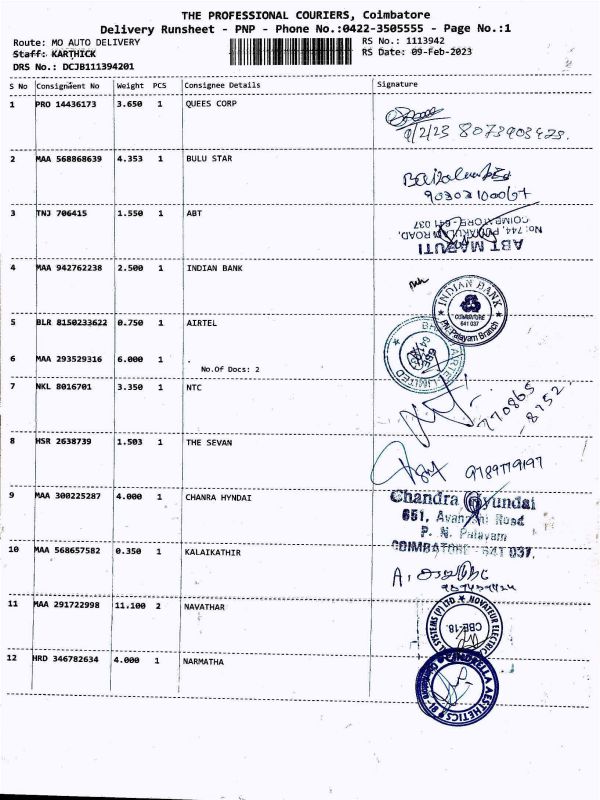 THE PROFESSIONAL COURIERS, Coimbatore
Delivery Runsheet - PNP - Phone No.:0422-3505555 - Page No.:1
Route: MO AUTO DELIVERY RS No.: 1113942
Staff: KARTHICK RS Date: 09-Feb-2023
DRS No.: DCJB111394201
S No Consignment No Weight PCS Consignee Details Signature
1 PRO 14436173 3.650 1 QUEES CORP
9/2/23
2 MAA 568868639 4.353 1 BULU STAR
3 TNJ 706415 1.550 1 ABT
ABT MARUTI
No: 744, PULIAKULAM ROAD,
COIMBATORE - 641 037
4 MAA 942762238 2.500 1 INDIAN BANK
INDIAN BANK
COIMBATORE
641 037
P.N. Palayam Branch
5 BLR 8150233622 0.750 1 AIRTEL
6 MAA 293529316 6.000 1 .
No.Of Docs: 2
LIMITED
7 NKL 8016701 3.350 1 NTC
770865
8752
8 HSR 2638739 1.503 1 THE SEVAN
9789779197
9 MAA 300225287 4.000 1 CHANRA HYNDAI
Chandra Hyundai
651, Avanashi Road
P. N. Palayam
COIMBATORE - 641 037.
10 MAA 568657582 0.350 1 KALAIKATHIR
11 MAA 291722998 11.100 2 NAVATHAR
NOVATEUR ELECTRIC
SYSTEMS (P) LTD
CBE-18
12 HRD 346782634 4.000 1 NARMATHA
AESTHETICS